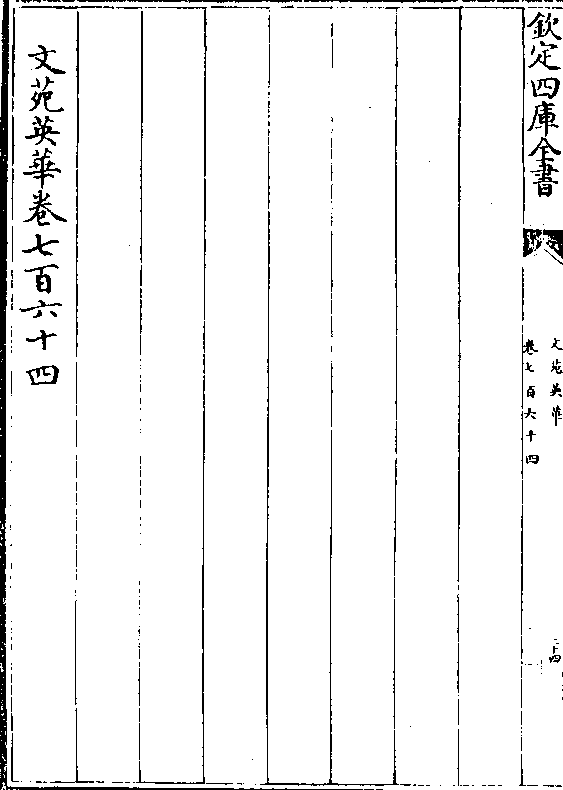 欽定四庫全書
文苑英華
卷七百六十四
二十四
文苑英華卷七百六十四